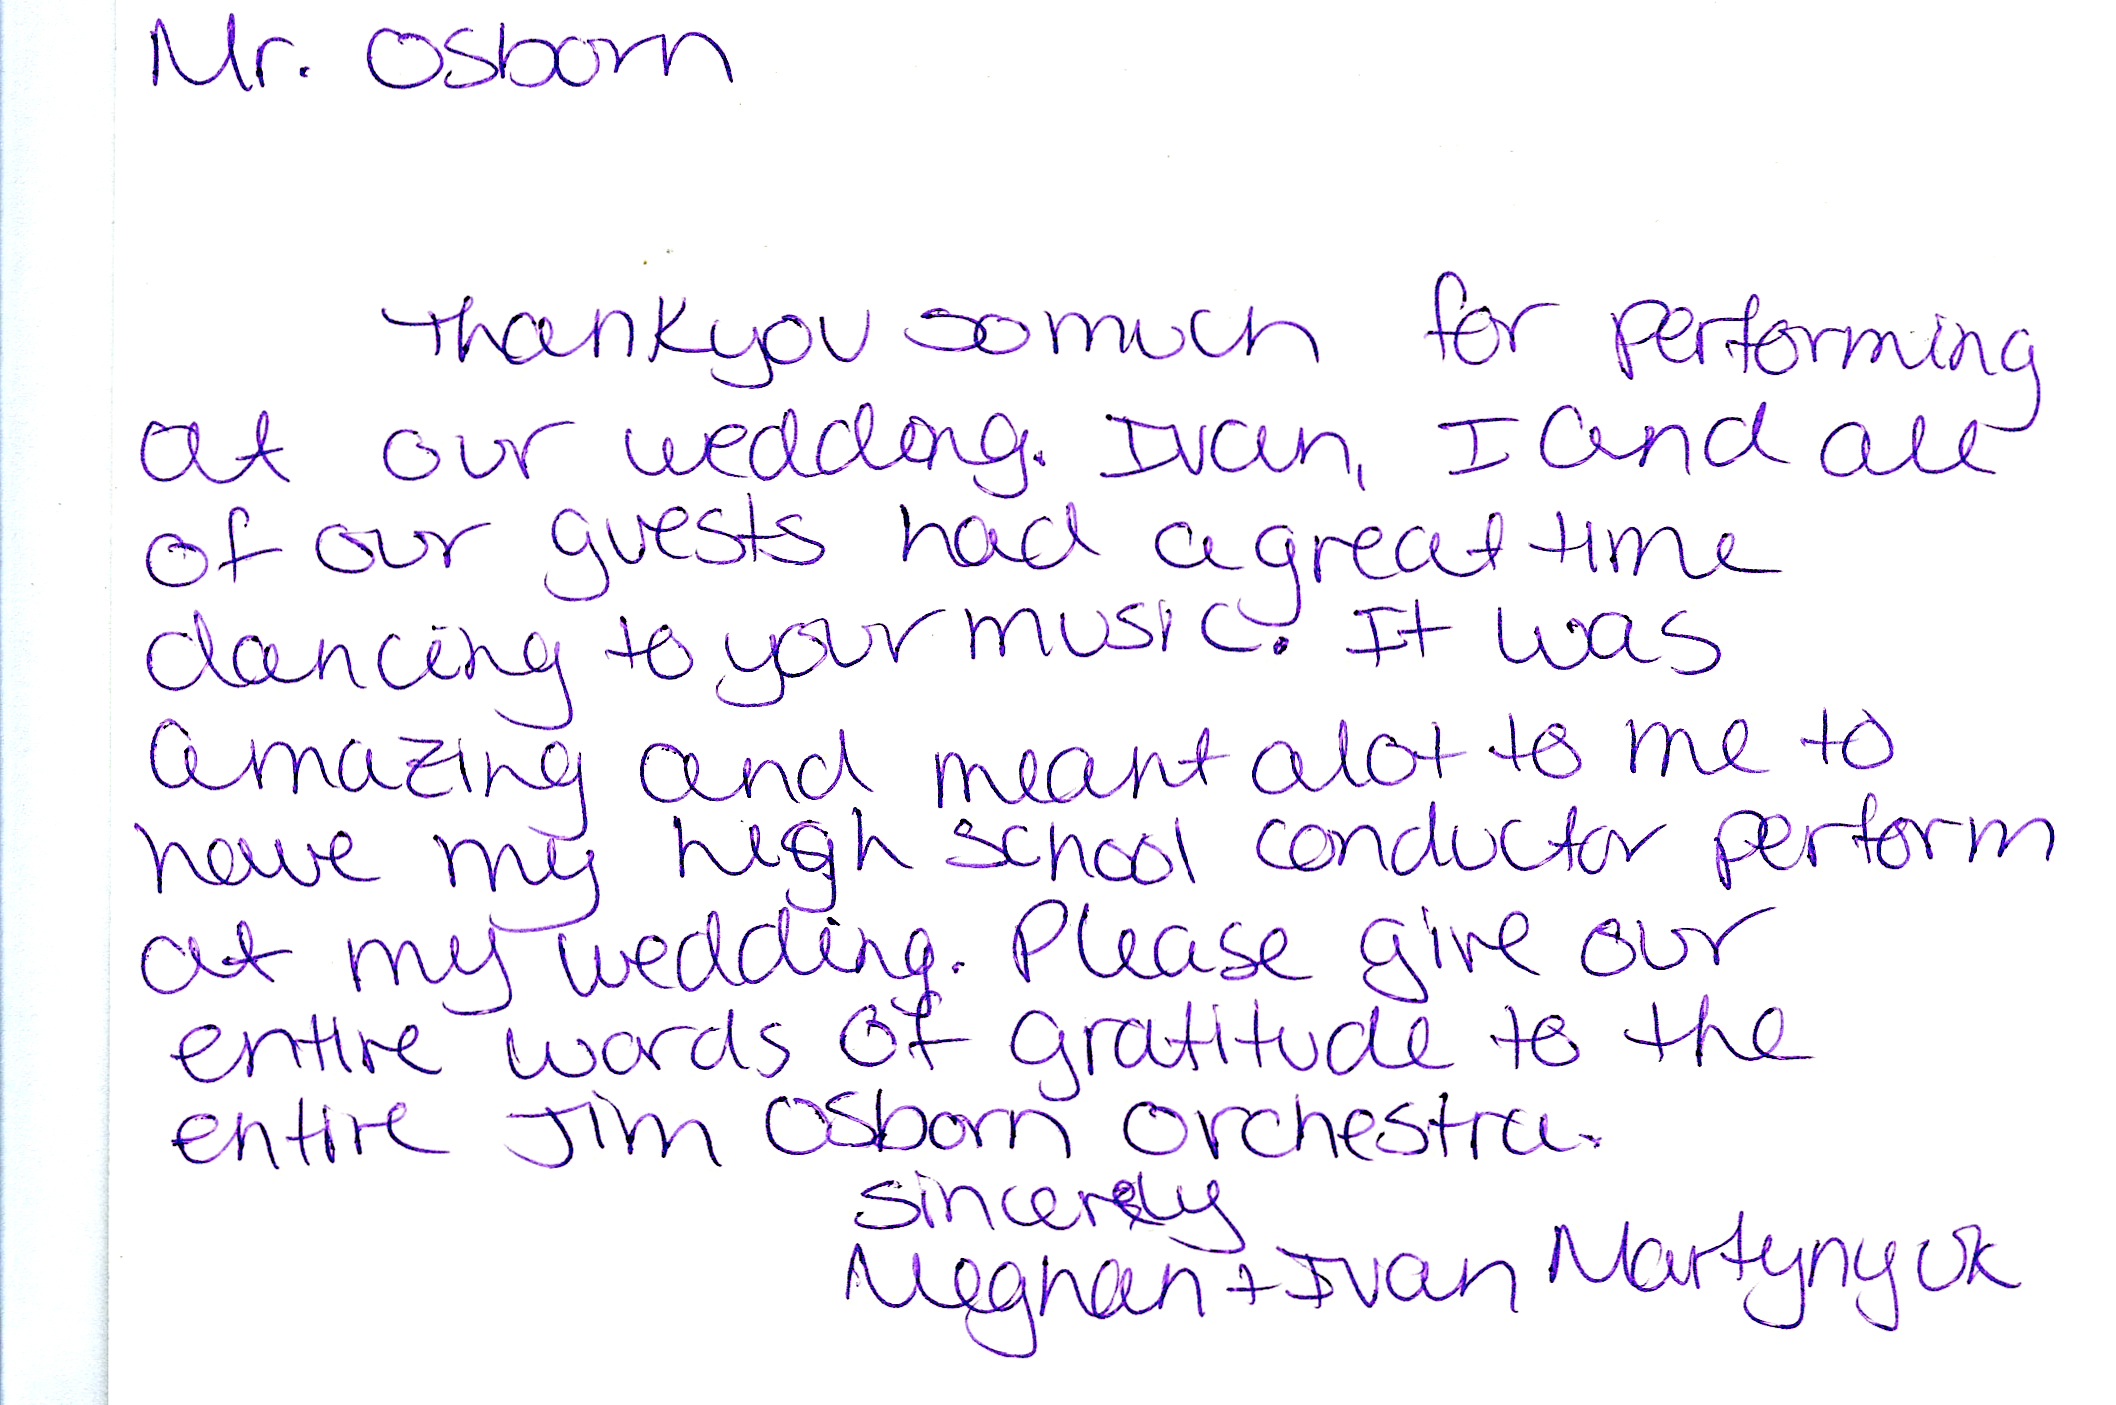 Mr. Osborn
Thankyou so much for performing
at our wedding. Ivan, I and all
of our guests had a great time
dancing to your music. It was
amazing and meant alot to me to
have my high school conductor perform
at my wedding. Please give our
entire words of gratitude to the
entire Jim Osborn Orchestra.
Sincerely
Meghan + Ivan Martynyuk